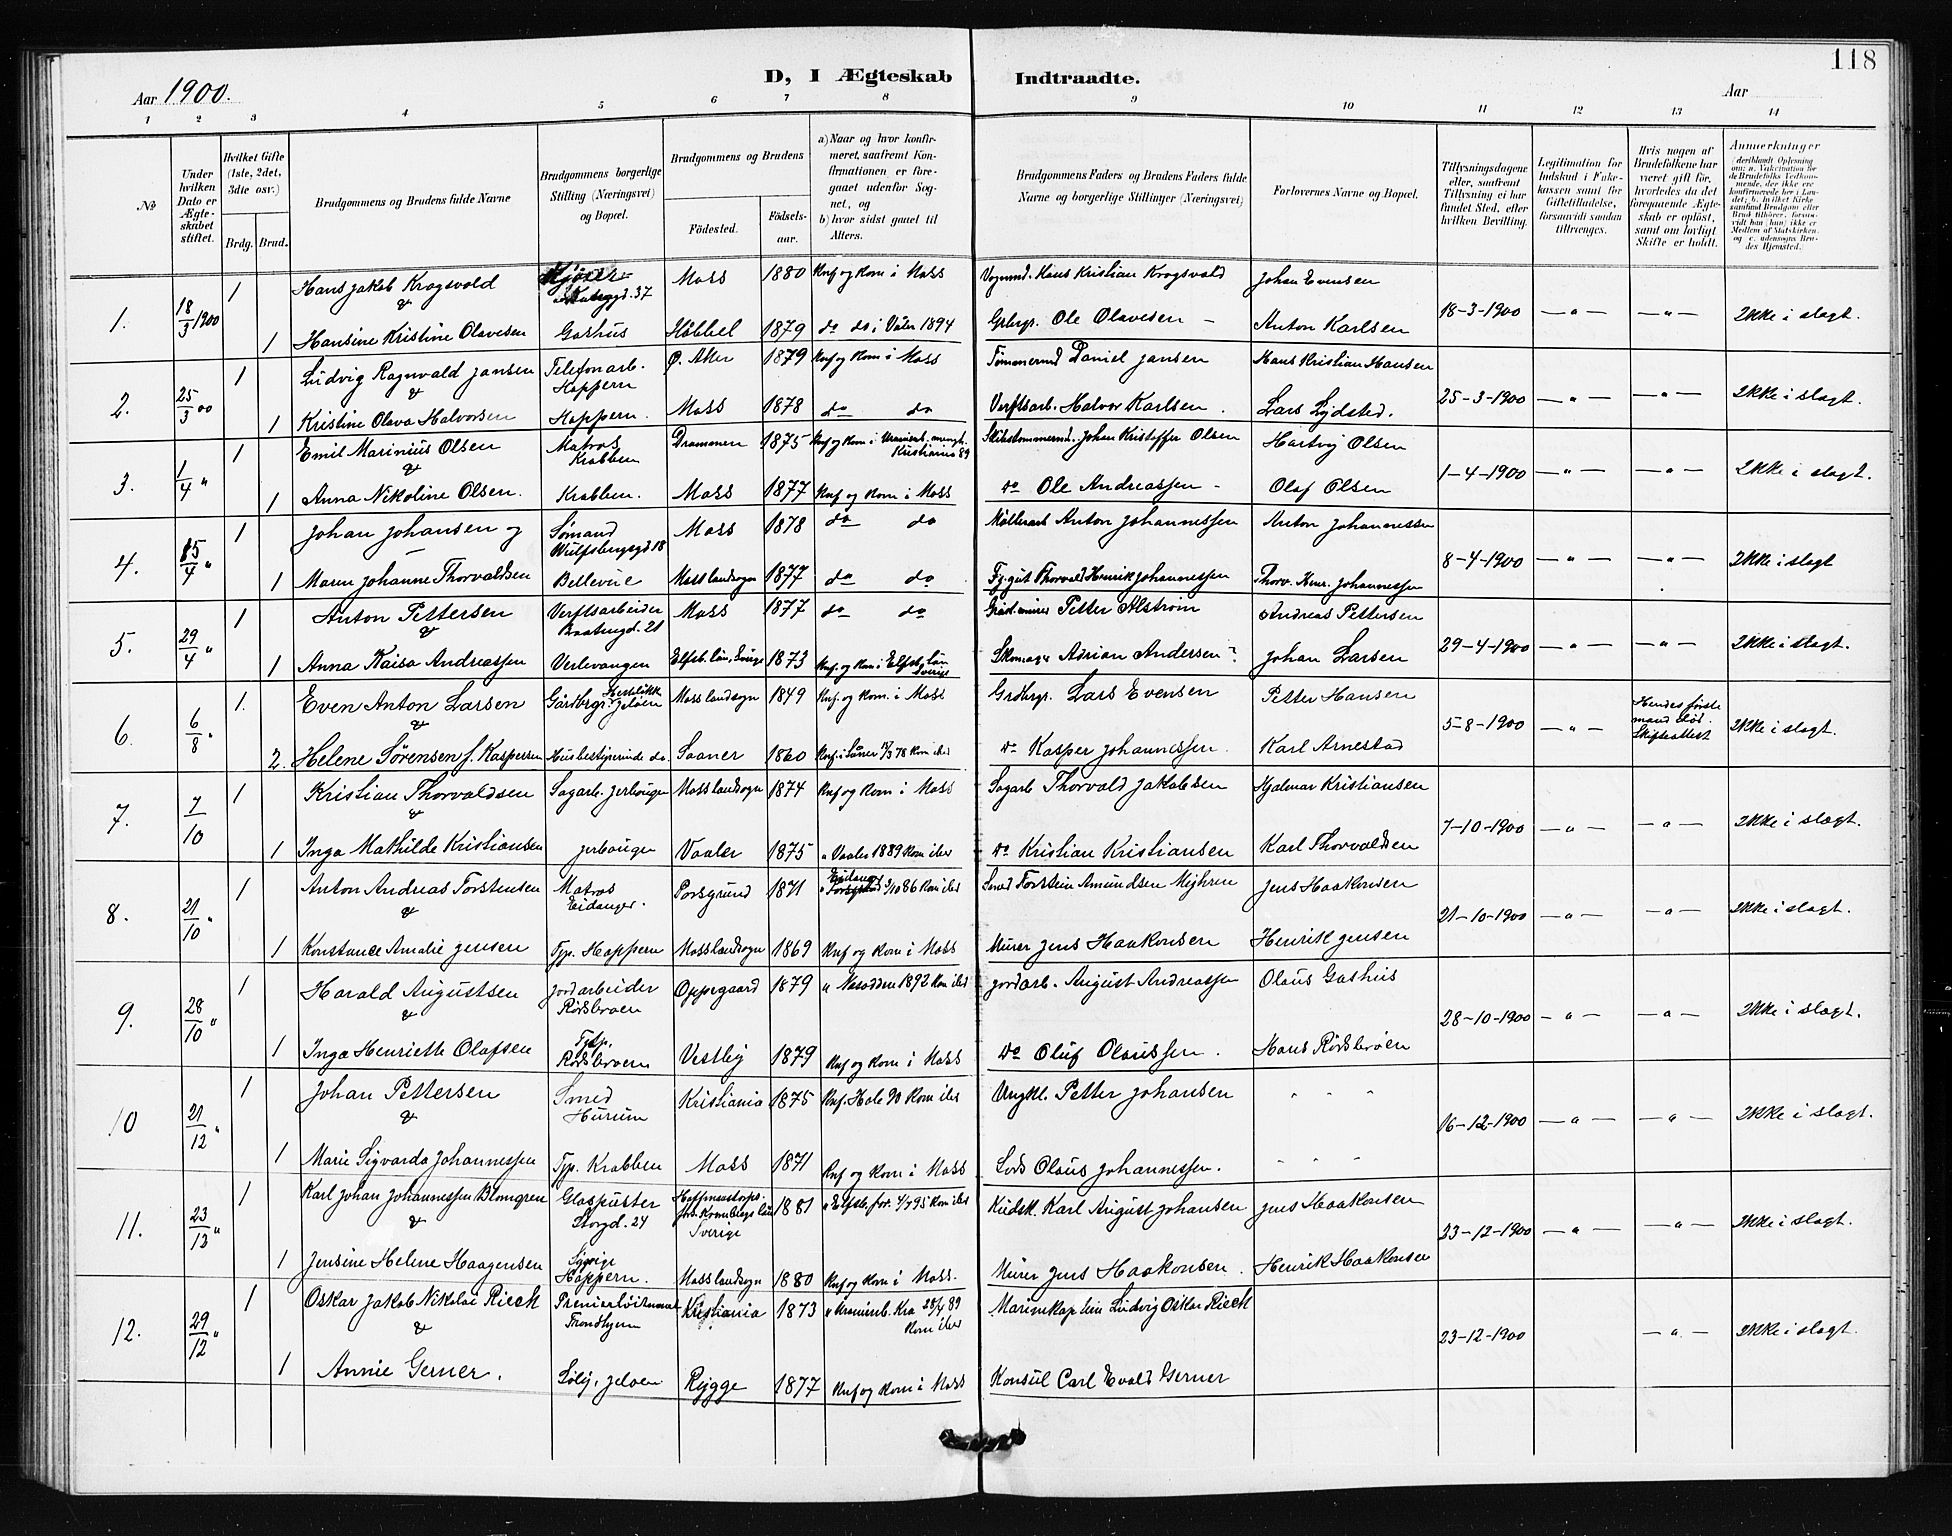 118
D, I Ægteskab Indtraadte.
Aar 1900.
Aar
1 2 3 4 5 6 7 8 9 10 11 12 13 14
№
Under hvilken Dato er Ægteskabet stiftet.
Hvilket Gifte (1ste, 2det, 3die osv.)
Brdg. Brud.
Brudgommens og Brudens fulde Navne
Brudgommens borgerlige Stilling (Næringsvei) og Bopæl.
Brudgommens og Brudens
Fødested.
Fødselsaar.
a) Naar og hvor konfirmeret, saafremt Konfirmationen er foregaaet udenfor Sognet, og
b) hvor sidst gaaet til Alters.
Brudgommens Faders og Brudens Faders fulde Navne og borgerlige Stillinger (Næringsvei)
Forlovernes Navne og Bopæl.
Tillysningsdagene eller, saafremt Tillysning ei har fundet Sted, efter hvilken Bevilling.
Legitimation for Indskud i Enkekassen samt for Giftetilladelse, forsaavidt saadan tiltrænges.
Hvis nogen af Brudefolkene har været gift før, hvorledes da det foregaaende Ægteskab er opløst, samt om lovligt Skifte er holdt.
Anmerkninger
1. 18/3 1900 1 Hans Jakob Krogsvold Kjører 37 Moss 1880 Knf og kom i Moss Vognmd. Hans Kristian Krogsvold Johan Evensen 18-3-1900 — " — — " — Ikke i slægt.
&
1 Hansine Kristine Olavesen Gashus Hobbel 1879 do do i Vaaler 1894 Grbrgr. Ole Olavesen – Anton Karlsen
2. 25/3 00 1 Ludvig Ragnvald Jansen Telefonarb. Koppern Ø. Aker 1879 Knf og kom i Moss Tømmermd Daniel Jansen Hans Kristian Hansen 25-3-1900 — " — — " — Ikke i slægt.
&
1 Kristine Olava Halvorsen Koppern. Moss 1878 do do Verftsarb. Halvor Karlsen. Lars Lydsted.
3. 1/4 " 1 Emil Marinius Olsen Matros Krabben Drammen 1875 Knf og kom i Kristiania 89 Skibstømmermd. Johan Kristoffer Olsen Hartvig Olsen 1-4-1900 — " — — " — Ikke i slægt.
&
1 Anna Nikoline Olsen. Krabben. Moss 1877 Knf og kom i Moss do Ole Andreassen – Olaf Olsen
4. 15/4 " 1 Johan Johansen og Sømand Wulfsbergsgd 18 Moss 1878 do do Møllerarb Anton Johannessen Anton Johannessen 8-4-1900 — " — — " — Ikke i slægt
1 Maren Johanne Thorvaldsen Bellevue Moss landsogn 1877 do do Thorvald Henrik Johannessen Thorv. Henr. Johannessen
5. 29/4 " 1 Anton Pettersen Verftsarbeider 21 Moss 1877 do do Petter Alstrøm Andreas Pettersen 29-4-1900 — " — — " — Ikke i slægt.
&
1 Anna Kaisa Andreassen Verlevangen Elfsb. län, Sverige 1873 Knf. og kom i Elfsb. län Sverige Skomager Adrian Andersen Johan Larsen
6. 6/8 " 1. Even Anton Larsen Gårdbrgr. Jeløen Moss landsogn 1849 Knf. og kom. i Moss Grdbrgr. Lars Evensen Petter Hansen 5-8-1900 — " — Hendes første mand død. Skifteattest Ikke i slægt.
&
2. Helene Sørensen f. Kaspersen Husbestyrerinde do. Saaner 1860 Knf. i Såner 78 kom ibid do Kasper Johannessen. Karl Arnestad
7. 7/10 1 Kristian Thorvaldsen Sagarb. Jerbaugen Moss landsogn 1874 Knf og kom i Moss Sagarb Thorvald Jakobsen Hjalmar Kristiansen 7-10-1900 — " — — " — Ikke i slægt.
&
1 Inga Mathilde Kristiansen Jerbaugen Vaaler 1875 " Vaaler 1889 kom ibid do Kristian Kristiansen Karl Thorvaldsen
8. 21/10 " 1 Anton Andreas Torstensen Matros Eidanger. Porsgrund 1871 Eidanger 86 kom ibid Smed Torstein Amundsen Jens Haakonsen 21-10-1900 — " — — " — Ikke i slægt.
&
1 Konstance Amalie Jensen Tjp. Koppern Moss landsogn 1869 Knf og kom i Moss Murer Jens Haakonsen Henrik Jensen
9. 28/10 " 1 Harald Augustsen Jordarbeider Rødsbroen Oppegaard 1879 " Nesodden 1892 kom ibid Jordarb. August Andreassen Olaus Gashus 28-10-1900 — " — — " — Ikke i slægt.
&
1 Inga Henriette Olafsen Tjp. Rødsbroen Vestby 1879 Knf og kom i Moss do Oluf Olaussen. Hans Rødsbroen
10 21/12 " 1 Johan Pettersen Smed Hurum Kristiania 1875 Knf. Hole 90 kom ibid Petter Johansen " " " 16-12-1900 — " — — " — Ikke i slægt.
&
1 Marie Sigvarda Johannessen Tjp. Krabben Moss 1871 Knf og kom i Moss Lods Olaus Johannessen. " " "
11. 23/12 " 1 Karl Johan Johannessen Blomgren Glaspuster Storgd. 24 Kronobergs län Sverige 1881 95 kom ibid Kudsk. Karl August Johansen Jens Haakonsen 23-12-1900 — " — — " — Ikke i slægt.
&
1 Jensine Helene Haagensen Koppern. Moss landsogn 1880 Knf og kom i Moss. Murer Jens Haakonsen. Henrik Haakonsen
12. 29/12 " 1 Oskar Jakob Nikolai Rieck Premierløitnant Trondhjem Kristiania 1873 Kra 89 kom ibid Marinekaptein Ludvig Oskar Rieck 23-12-1900 — " — Ikke i slægt.
&
1 Annie Gerner. Jeløen Rygge 1877 Knf og kom i Moss Konsul Carl Evald Gerner